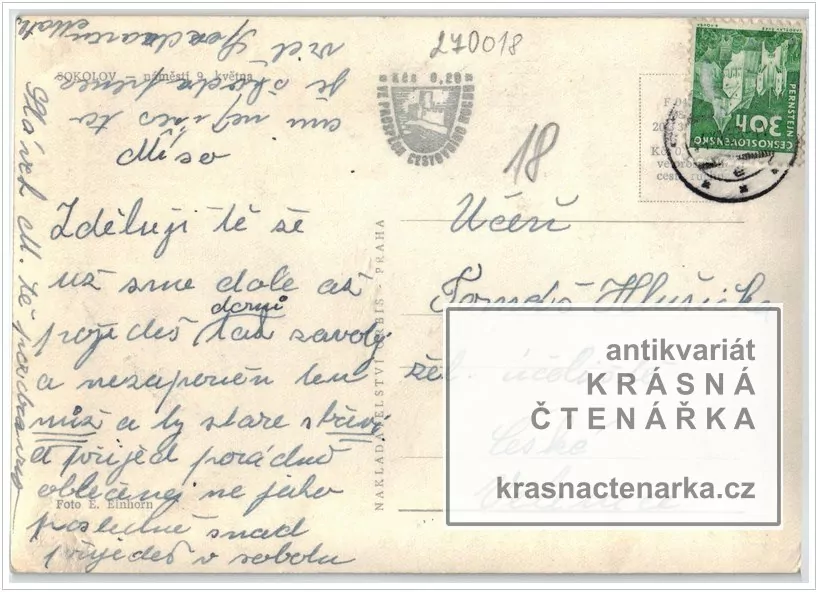 270018
SOKOLOV náměstí 9. května
Kčs 0,20
VE PROSPĚCH CESTOVNÍHO RUCHU
30h
ČESKOSLOVENSKO
PERNŠTEJN
18
Míšo
Zděluji tě že
už sme dole až
pojedeš domů tak zavolej
a nezapoměn ten
nůž a ty staré střeví
a přijeď pořádně
oblečenej ne jako
posledně snad
přijedeš v sobotu
Foto E. Einhorn
NAKLADATELSTVÍ ORBIS - PRAHA
Učeň
Tomáš
žel. učeliště
České
Velenice
Slávek M. tě pozdravuje
antikvariát
KRÁSNÁ
ČTENÁŘKA
krasnactenarka.cz